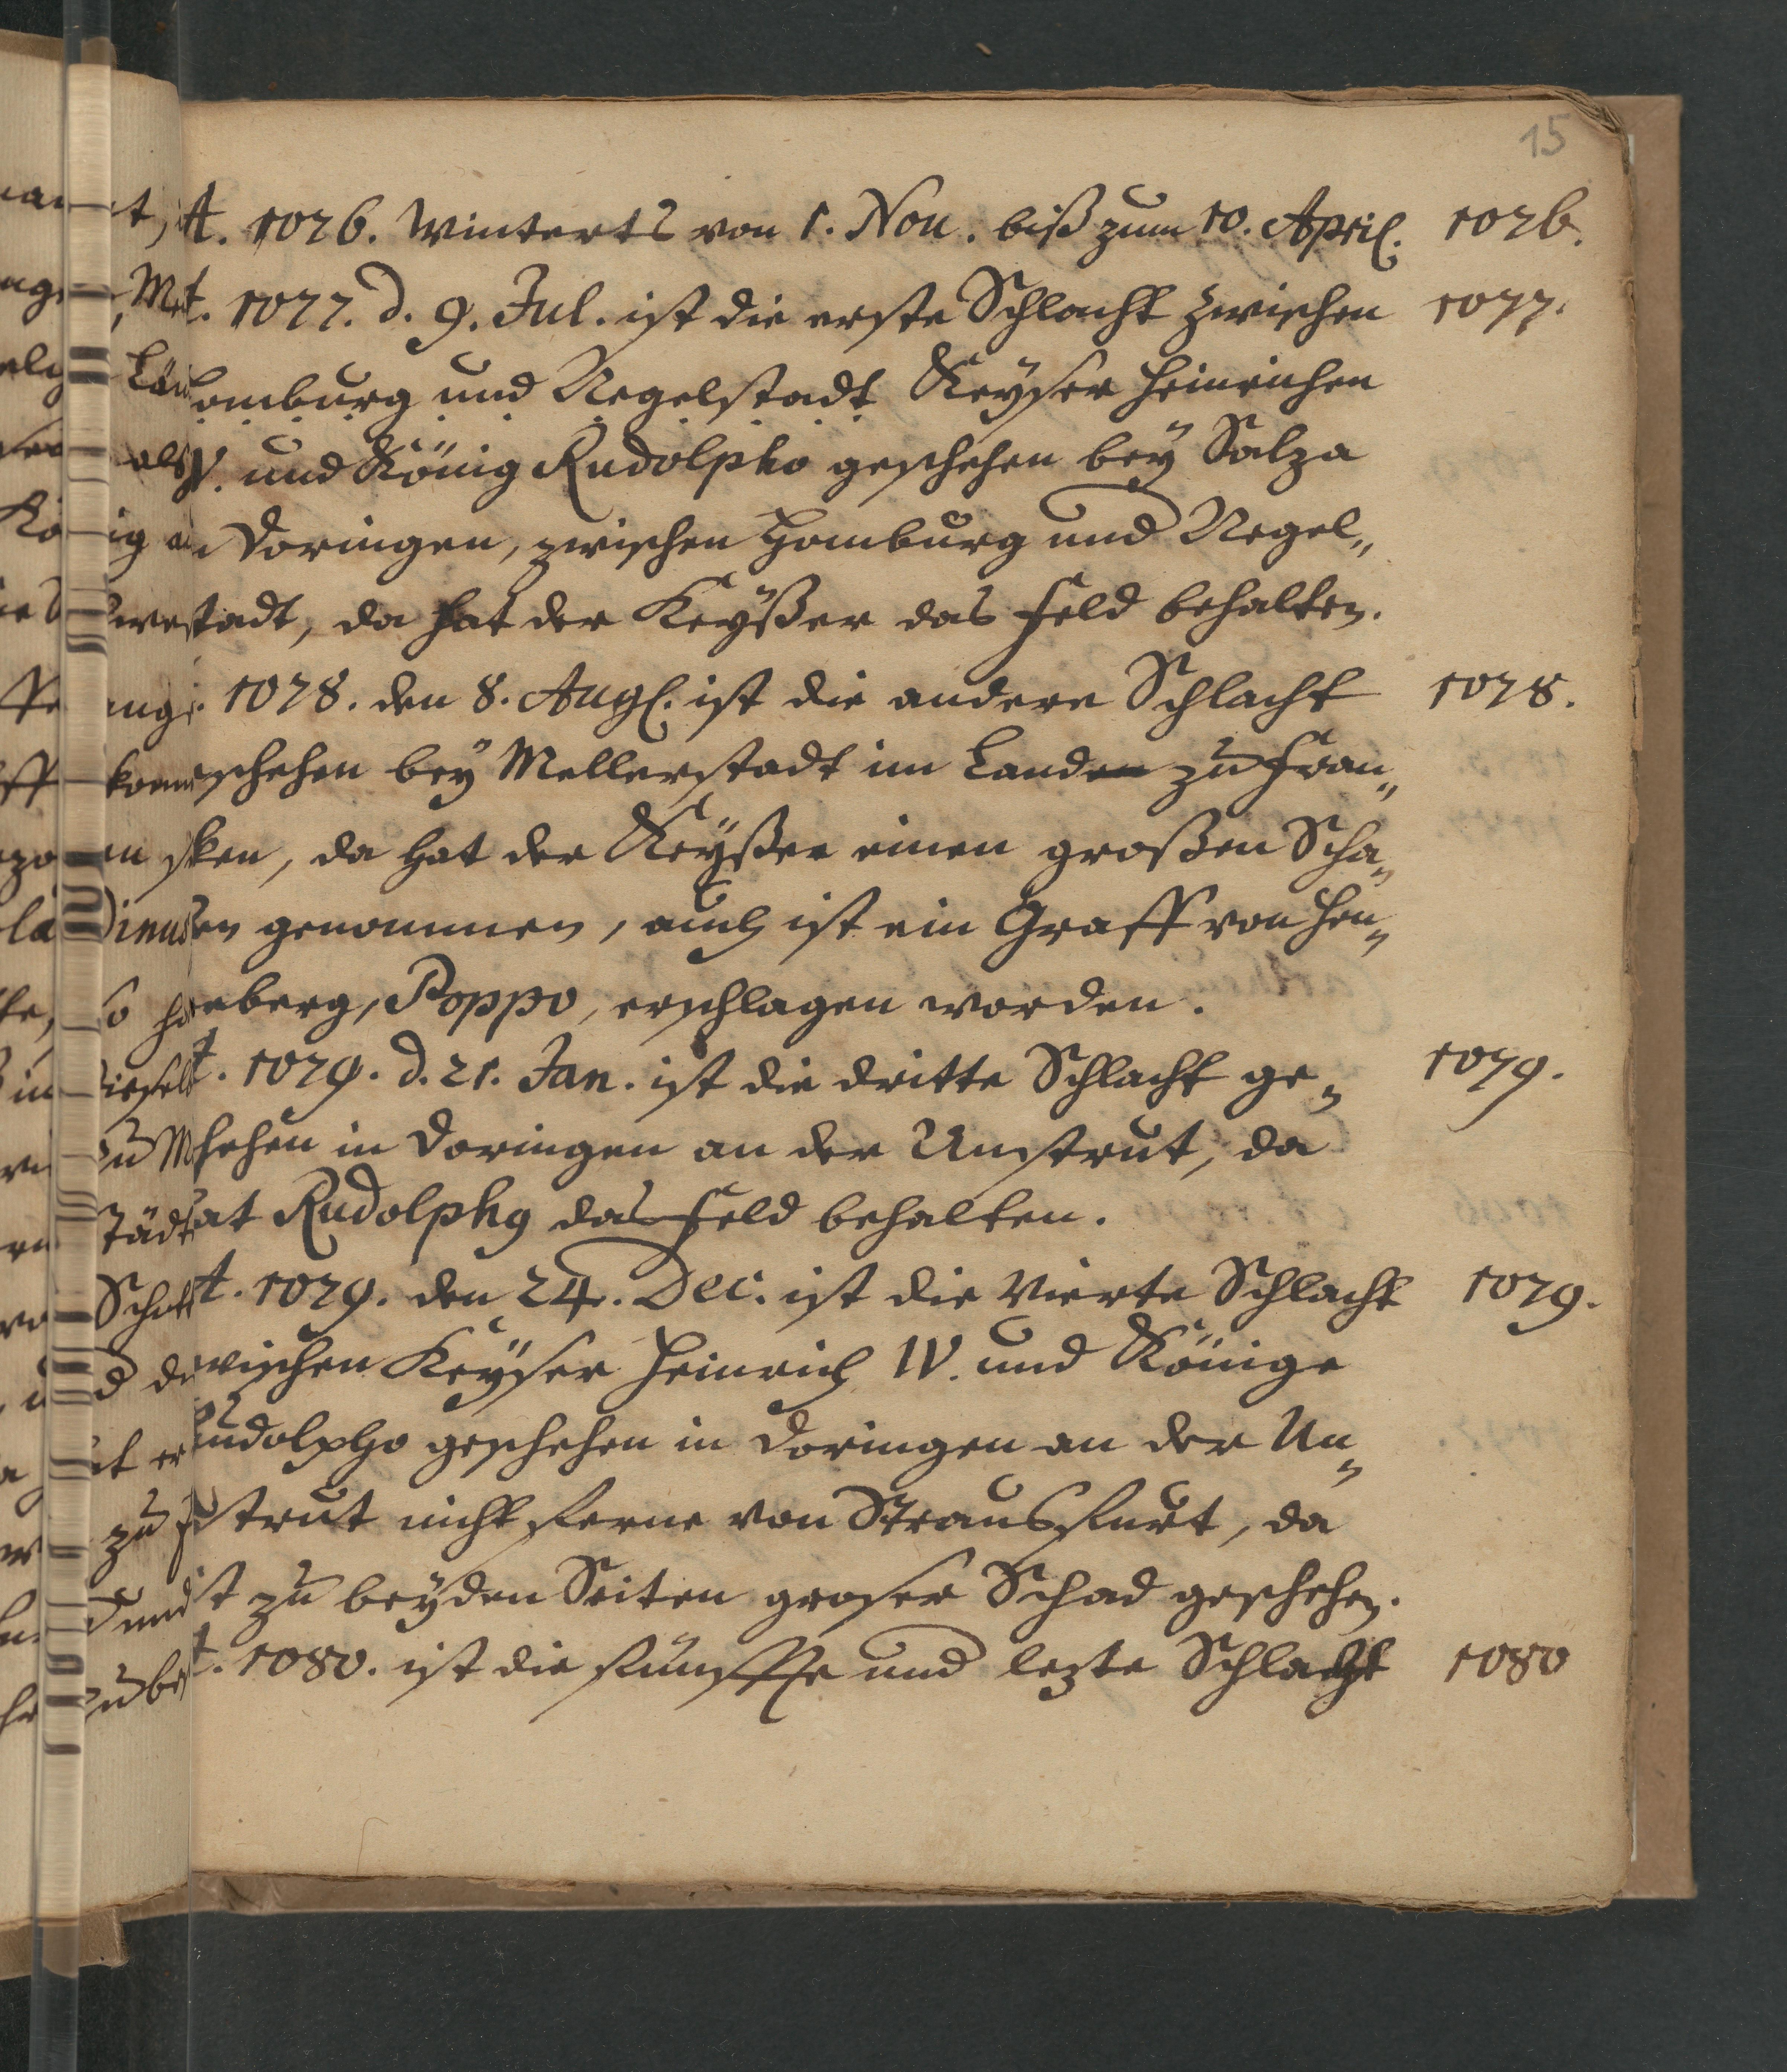 15
A. 1076. Winterts von 1. Nov. biß zum 10. April. 1076.
A. 1077. d. 9. Jul. ist die erste Schlacht zwischen 1077.
omburg und Negelstadt Keyser Heinrichen
V. und König Rudolpho geschehen bey Salza
in Doringen, zwischen Homburg und Negel„
stadt, da hat der Keyßer das Feld behalten.
1078. den 8. Aug. ist die andere Schlacht 1078.
schehen bey Mellerstadt im Landen zu Fran„
ken, da hat der Keyßer einen großen Scha„
en genommen, auch ist ein Graff von Hen„
eberg, Poppo, erschlagen worden.
A. 1079. d. 21. Jan. ist die dritte Schlacht ge„ 1079.
hehen in Doringen an der Unstrut, da
at Rudolphg das Feld behalten.
A. 1079. den 24. Dec. ist die Vierte Schlacht 1079.
wischen Keyser Heinrich IV. und Könige
Rudolpho geschehen in Doringen an der Un„
strut nicht ferne von Strausfurt, da
st zu beyden Seiten groser Schad geschehen.
A. 1080. ist die fünffte und lezte Schlacht 1080